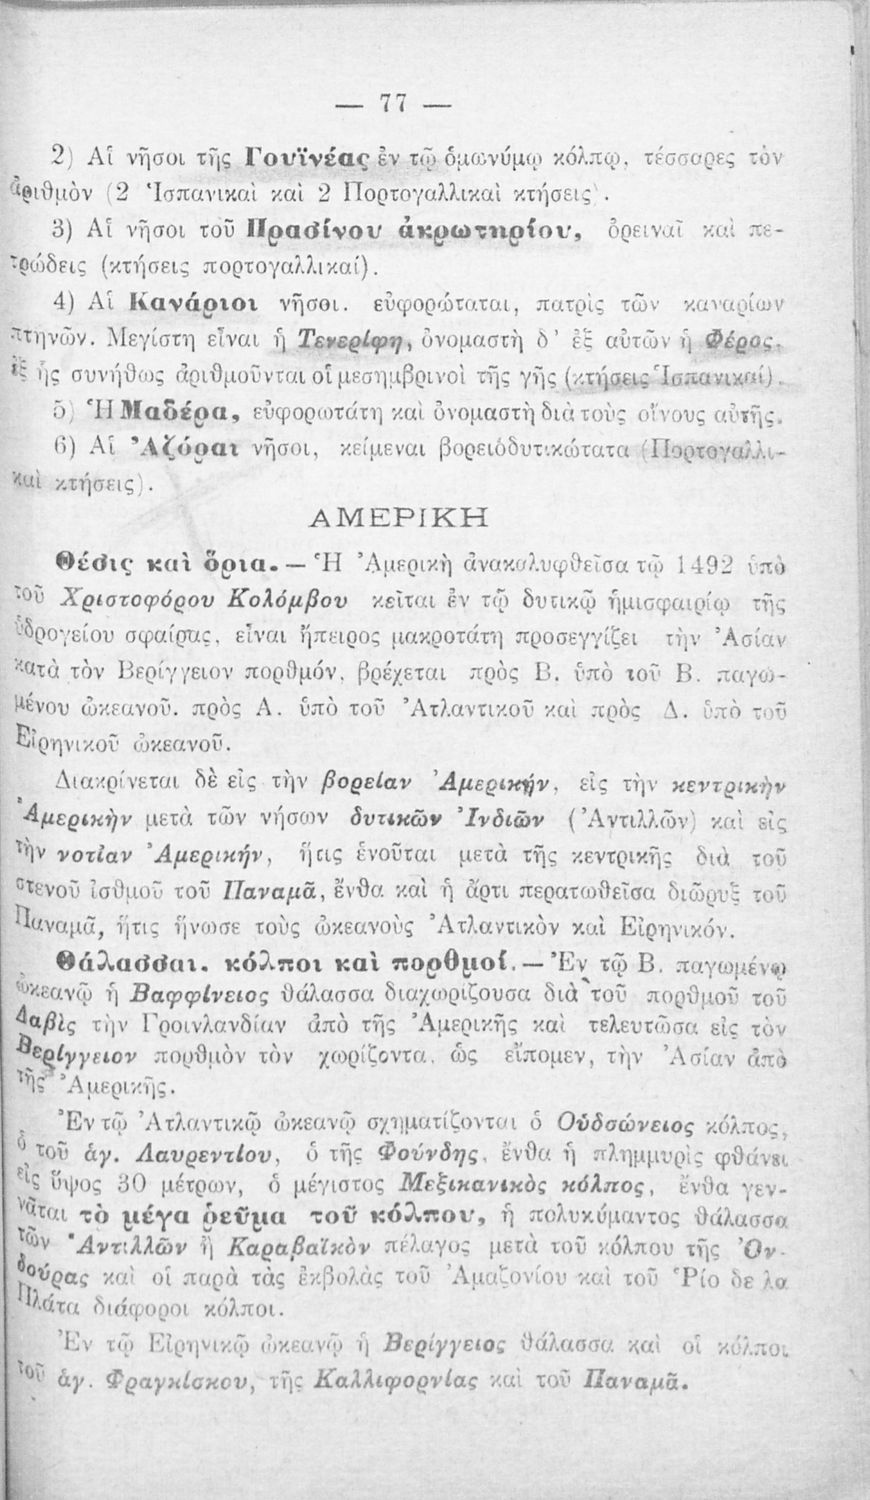 — 77 —
2) Αἱ νῆσοι τῆς Γουϊνέας ἐν τῷ ὁμωνύμῳ κόλπῳ, τέσσαρες τὸν
ἀριθμὸν (2 Ἱσπανικαὶ καὶ 2 Πορτογαλλικαὶ κτήσεις).
3) Αἱ νῆσοι τοῦ Πρασίνου ἀκρωτηρίου, ὀρειναῖ καὶ πε-
τρώδεις (κτήσεις πορτογαλλικαί).
4) Αἱ Κανάριοι νῆσοι. εὐφορώταται, πατρὶς τῶν καναρίων
πτηνῶν. Μεγίστη εἶναι ἡ Τενερίφη, ὀνομαστὴ δ' ἐξ αὐτῶν ἡ Φέρος.
ἐξ ἧς συνήθως ἀριθμοῦνται οἱ μεσημβρινοὶ τῆς γῆς (κτήσεις Ἱσπανικαί).
5) Ἡ Μαδέρα, εὐφορωτάτη καὶ ὀνομαστὴ διὰ τοὺς οἴνους αὐτῆς.
6) Αἱ Ἀζόραι νῆσοι, κείμεναι βορειόδυτικώτατα (Πορτογαλλι-
καὶ κτήσεις).
ΑΜΕΡΙΚΗ
Θέσις καὶ ὅρια. — Ἡ Ἀμερικὴ ἀνακαλυφθεῖσα τῷ 1492 ὑπὸ
τοῦ Χριστοφόρου Κολόμβου κεῖται ἐν τῷ δυτικῷ ἡμισφαιρίῳ τῆς
ὑδρογείου σφαίρας, εἶναι ἤπειρος μακροτάτη προσεγγίζει τὴν Ἀσίαν
κατὰ τὸν Βερίγγειον πορθμόν, βρέχεται πρὸς Β. ὑπὸ τοῦ Β. παγω-
μένου ὠκεανοῦ. πρὸς Α. ὑπὸ τοῦ Ἀτλαντικοῦ καὶ πρὸς Δ. ὑπὸ τοῦ
Εἰρηνικοῦ ὠκεανοῦ.
Διακρίνεται δὲ εἰς τὴν βορείαν Ἀμερικήν, εἰς τὴν κεντρικὴν
Ἀμερικὴν μετὰ τῶν νήσων δυτικῶν Ἰνδιῶν (Ἀντιλλῶν) καὶ εἰς
τὴν νοτίαν Ἀμερικήν, ἥτις ἑνοῦται μετὰ τῆς κεντρικῆς διὰ τοῦ
στενοῦ ἰσθμοῦ τοῦ Παναμᾶ, ἔνθα καὶ ἡ ἄρτι περατωθεῖσα διῶρυξ τοῦ
Παναμᾶ, ἥτις ἥνωσε τοὺς ὠκεανοὺς Ἀτλαντικὸν καὶ Εἰρηνικόν.
Θάλασσαι. κόλποι καὶ πορθμοί. — Ἐν τῷ Β. παγωμένῳ
ὠκεανῷ ἡ Βαφφίνειος θάλασσα διαχωρίζουσα διὰ τοῦ πορθμοῦ τοῦ
Δαβὶς τὴν Γροινλανδίαν ἀπὸ τῆς Ἀμερικῆς καὶ τελευτῶσα εἰς τὸν
Βερίγγειον πορθμὸν τὸν χωρίζοντα. ὡς εἴπομεν, τὴν Ἀσίαν ἀπὸ
τῆς Ἀμερικῆς.
Ἐν τῷ Ἀτλαντικῷ ὠκεανῷ σχηματίζονται ὁ Οὑδσώνειος κόλπος,
ὁ τοῦ ἁγ. Λαυρεντίου, ὁ τῆς Φούνδης, ἔνθα ἡ πλημμυρὶς φθάνει
εἰς ὕψος 30 μέτρων, ὁ μέγιστος Μεξικανικὸς κόλπος, ἔνθα γεν-
νᾶται τὸ μέγα ῥεῦμα τοῦ κόλπου, ἡ πολυκύμαντος θάλασσα
τῶν Ἀντιλλῶν ἢ Καραβαϊκὸν πέλαγος μετὰ τοῦ κόλπου τῆς Ὁν-
δούρας καὶ οἱ παρὰ τὰς ἐκβολὰς τοῦ Ἀμαζονίου καὶ τοῦ Ῥίο δε λα
Πλάτα διάφοροι κόλποι.
Ἐν τῷ Εἰρηνικῷ ὠκεανῷ ἡ Βερίγγειος θάλασσα καὶ οἱ κόλποι
τοῦ ἁγ. Φραγκίσκου, τῆς Καλλιφορνίας καὶ τοῦ Παναμᾶ.